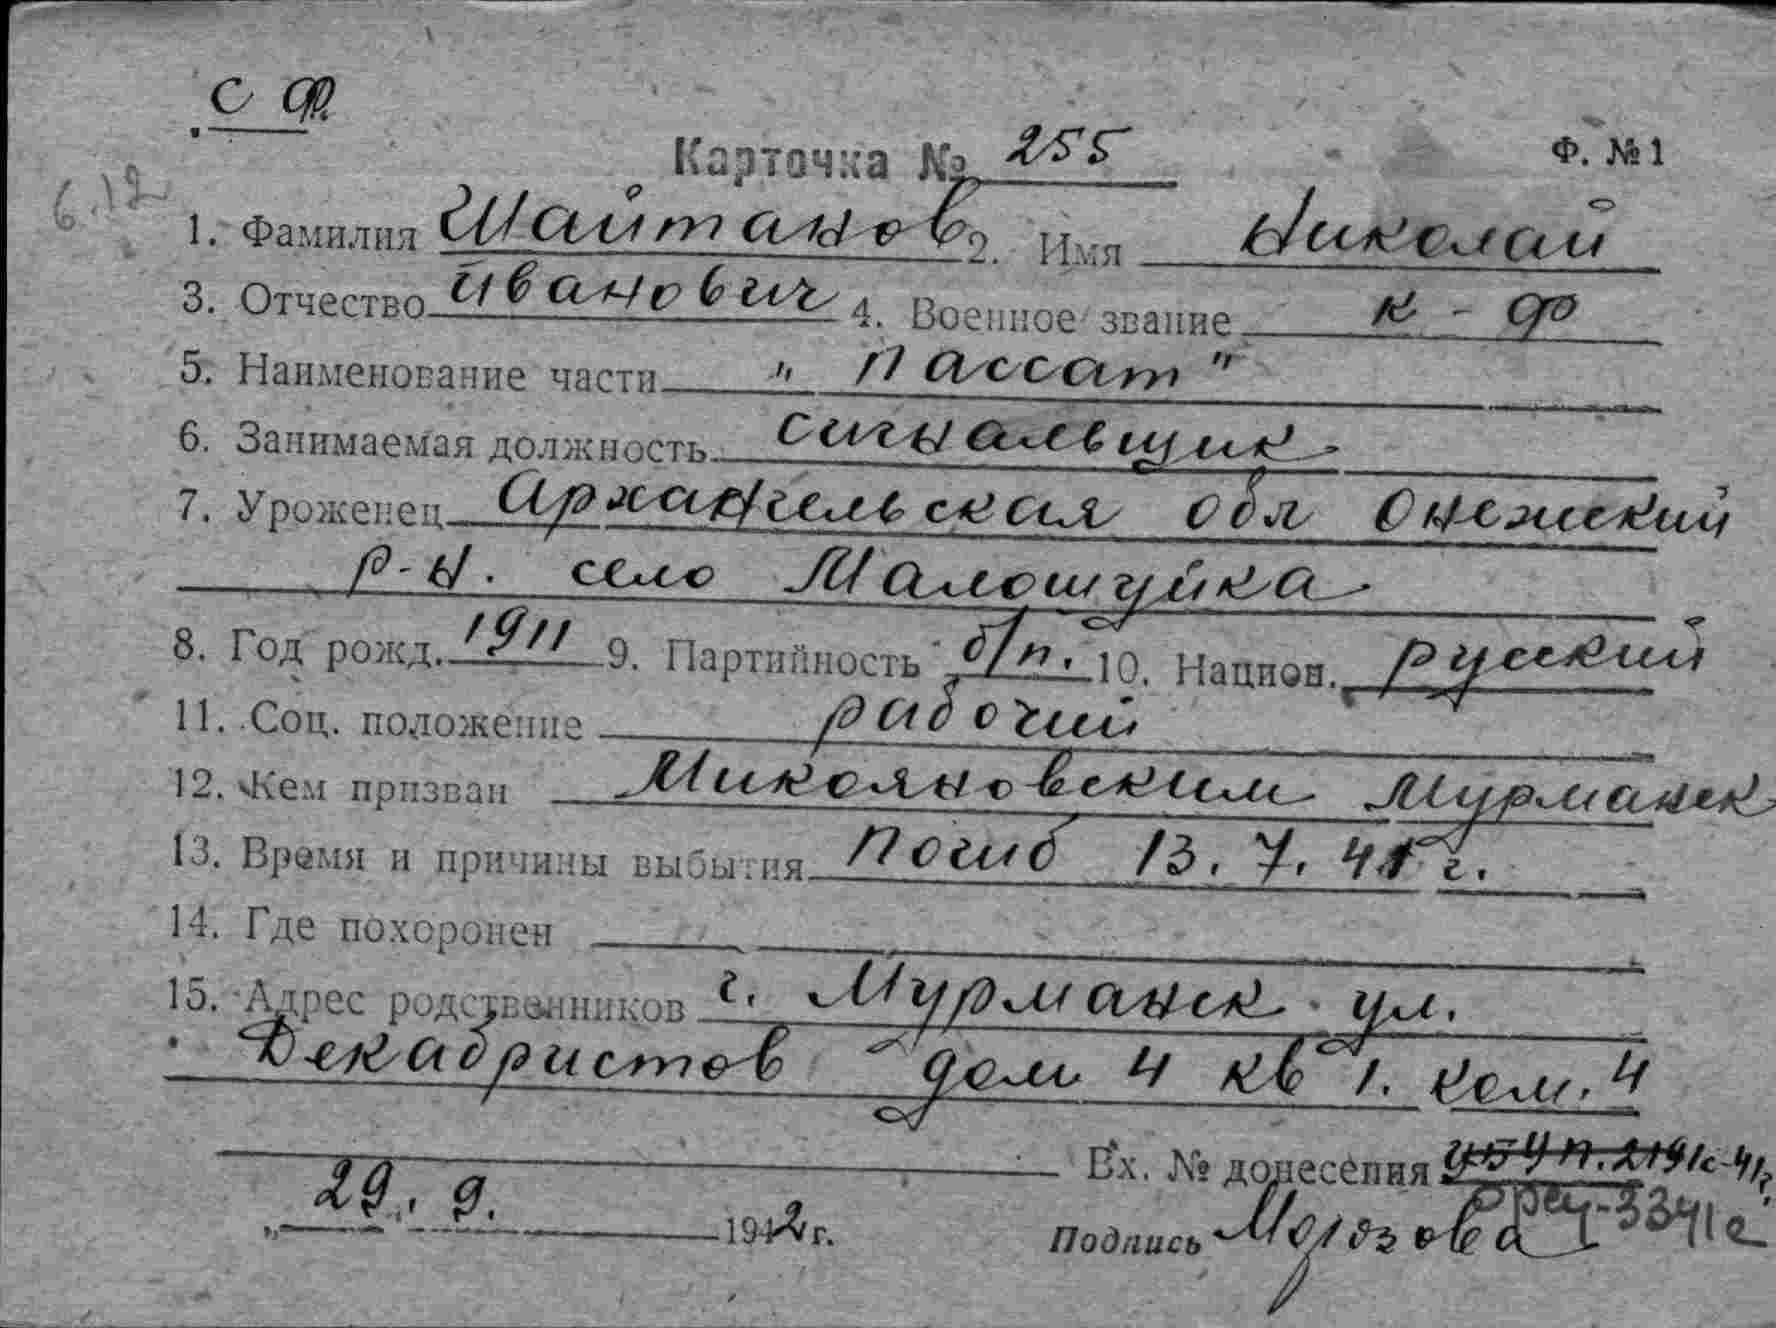 С Ф.
Карточка № 255 Ф. №1
6.12
1. Фамилия Шайтанов 2. Имя Николай
3. Отчество Иванович 4. Военное звание к-ф
5. Наименование части "Пассат"
6. Занимаемая должность сигнальщик
7. Уроженец Архангельская обл Онежский
р-н. село Малошуйка
8. Год рожд. 1911 9. Партийность б/п. 10. Национ. русский
11. Соц. положение рабочий
12. Кем призван Микояновским Мурманск
13. Время и причины выбытия Погиб 13.7.41 г.
14. Где похоронен
15. Адрес родственников г. Мурманск ул.
Декабристов дом 4 кв 1. ком. 4
Вх. № донесения
„ 29. 9. 1942 г. Подпись Морозова 3341с